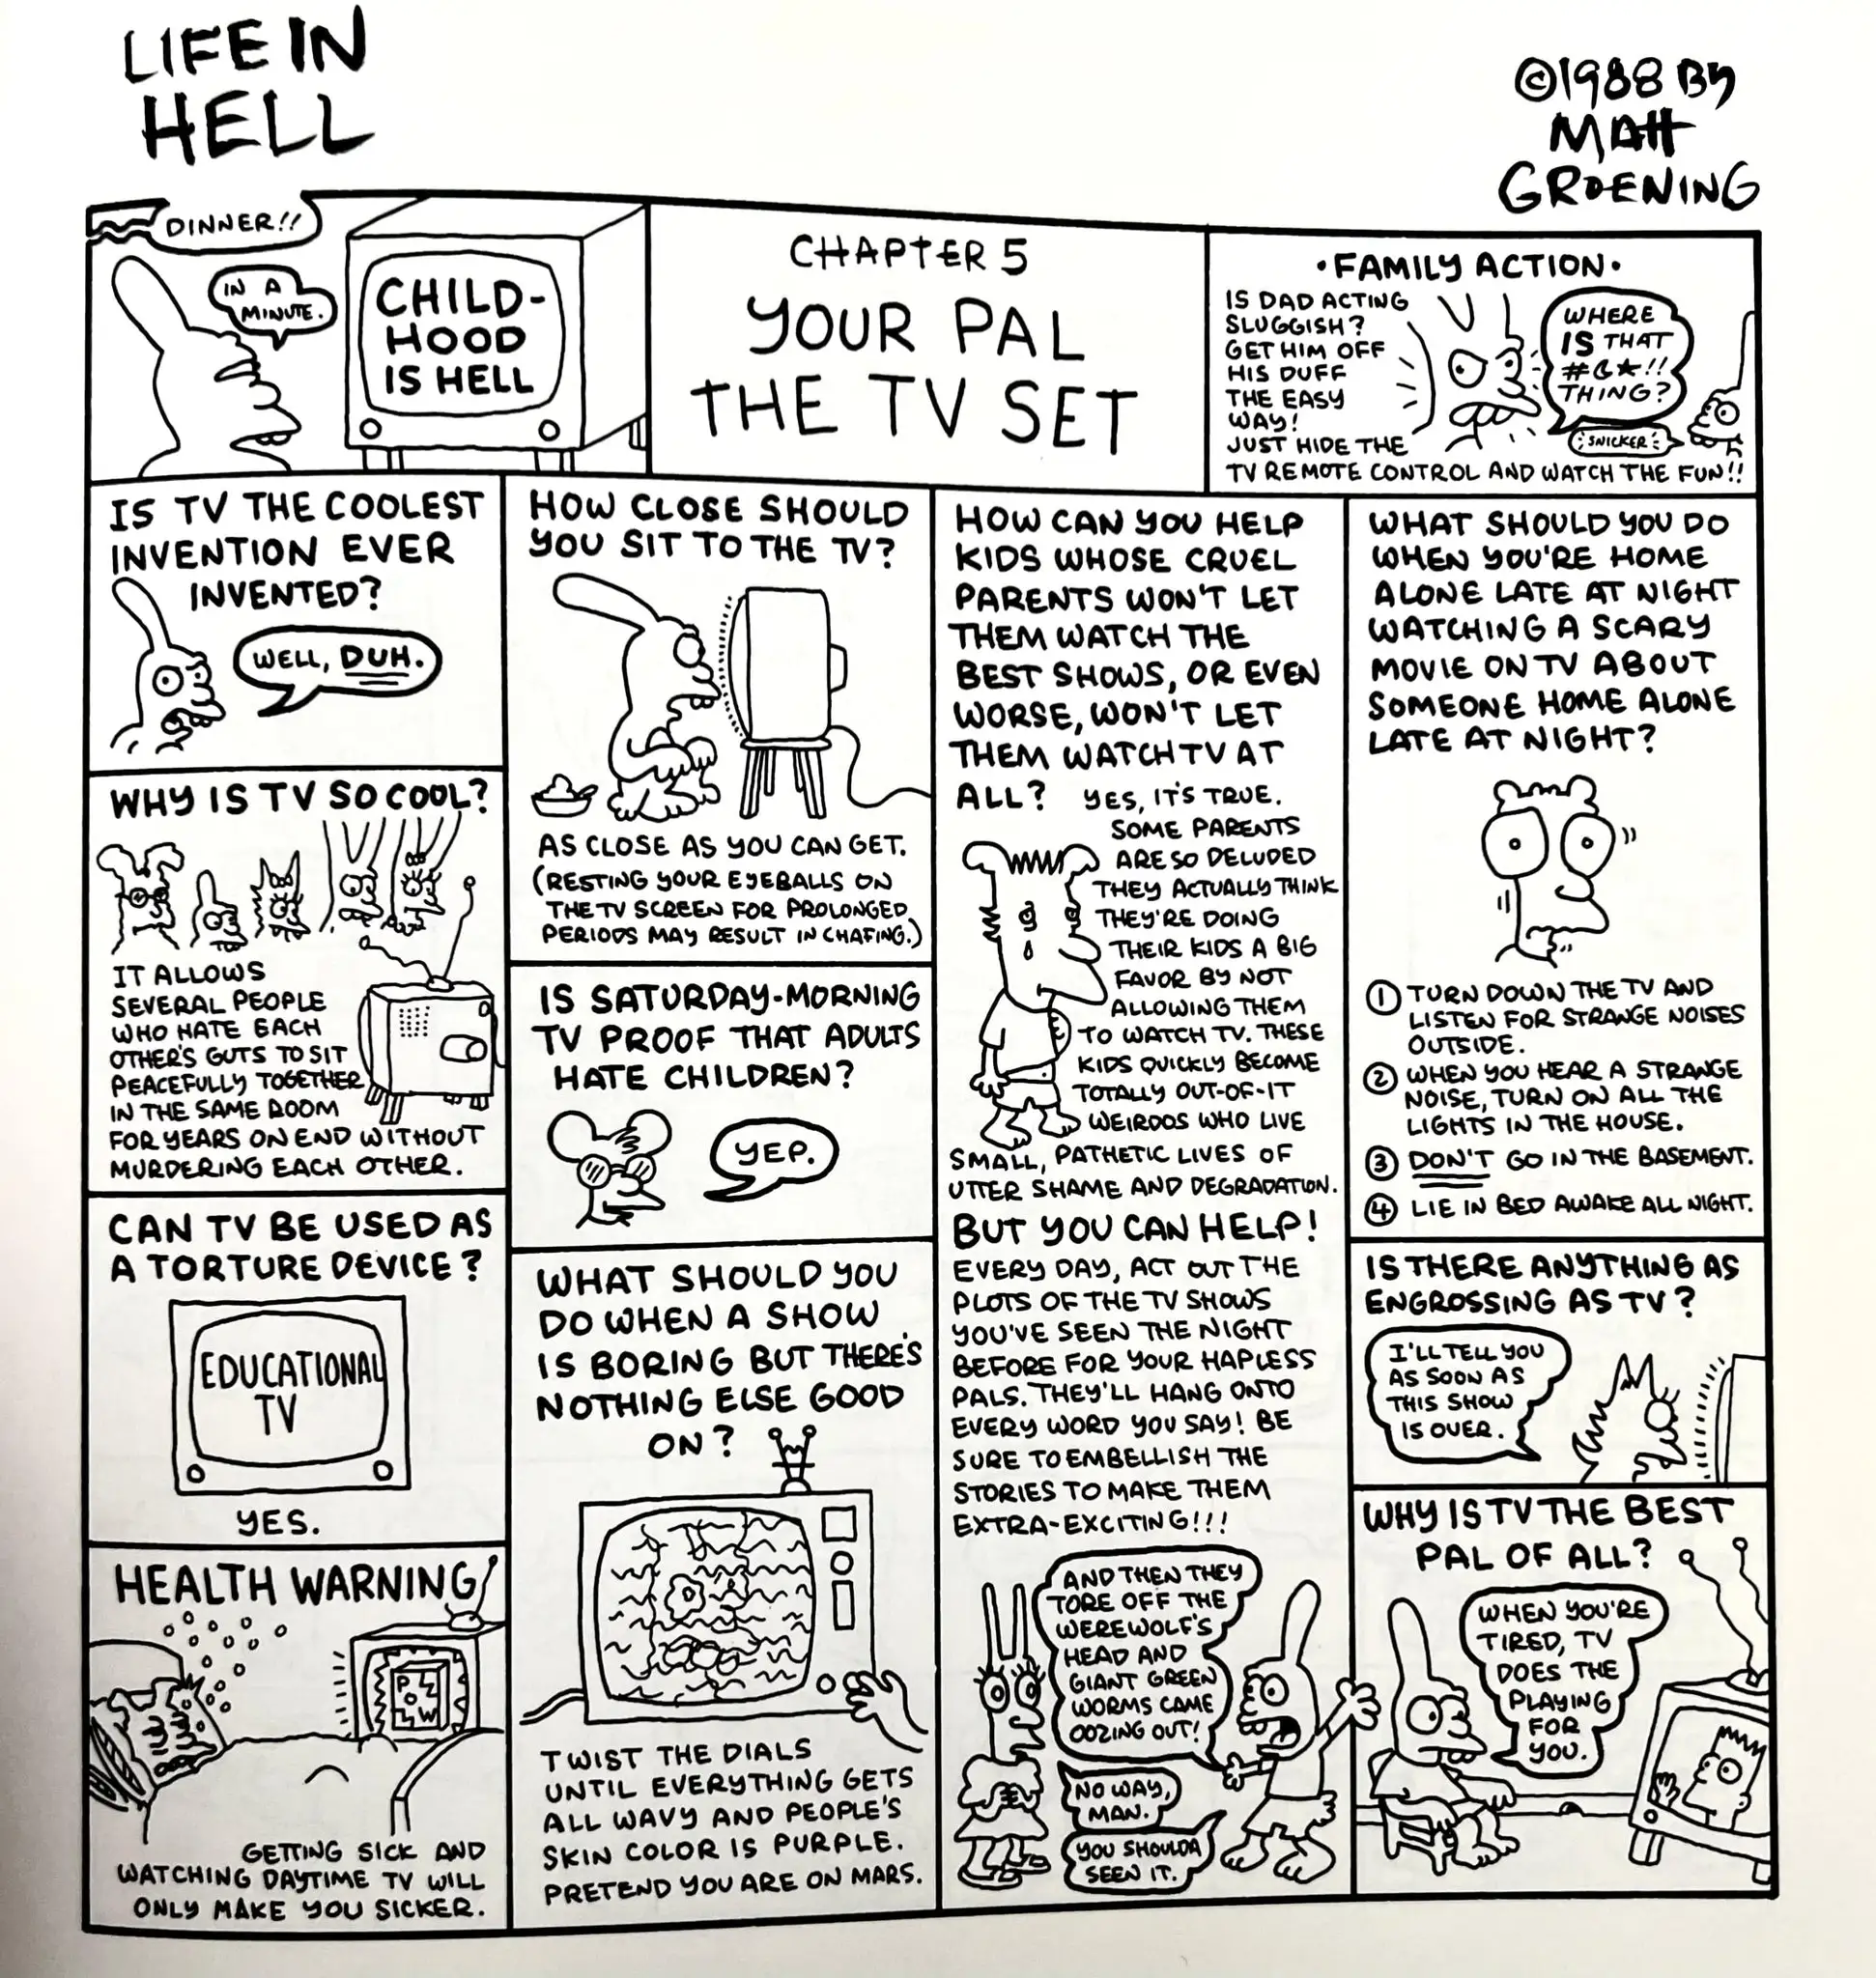 LIFE IN
HELL
©1988 BY
MATT
GROENING
DINNER!!
IN A
MINUTE.
CHILD-
HOOD
IS HELL
CHAPTER 5
YOUR PAL
THE TV SET
·FAMILY ACTION·
IS DAD ACTING
SLUGGISH?
GET HIM OFF
HIS DUFF
THE EASY
WAY!
JUST HIDE THE
TV REMOTE CONTROL AND WATCH THE FUN!!
WHERE
IS THAT
#☾★!!
THING?
SNICKER
IS TV THE COOLEST
INVENTION EVER
INVENTED?
WELL, DUH.
WHY IS TV SO COOL?
IT ALLOWS
SEVERAL PEOPLE
WHO HATE EACH
OTHER'S GUTS TO SIT
PEACEFULLY TOGETHER
IN THE SAME ROOM
FOR YEARS ON END WITHOUT
MURDERING EACH OTHER.
CAN TV BE USED AS
A TORTURE DEVICE?
EDUCATIONAL
TV
YES.
HEALTH WARNING
GETTING SICK AND
WATCHING DAYTIME TV WILL
ONLY MAKE YOU SICKER.
HOW CLOSE SHOULD
YOU SIT TO THE TV?
AS CLOSE AS YOU CAN GET.
(RESTING YOUR EYEBALLS ON
THE TV SCREEN FOR PROLONGED
PERIODS MAY RESULT IN CHAFING.)
IS SATURDAY-MORNING
TV PROOF THAT ADULTS
HATE CHILDREN?
YEP.
WHAT SHOULD YOU
DO WHEN A SHOW
IS BORING BUT THERE'S
NOTHING ELSE GOOD
ON?
TWIST THE DIALS
UNTIL EVERYTHING GETS
ALL WAVY AND PEOPLE'S
SKIN COLOR IS PURPLE.
PRETEND YOU ARE ON MARS.
HOW CAN YOU HELP
KIDS WHOSE CRUEL
PARENTS WON'T LET
THEM WATCH THE
BEST SHOWS, OR EVEN
WORSE, WON'T LET
THEM WATCH TV AT
ALL? YES, IT'S TRUE.
SOME PARENTS
ARE SO DELUDED
THEY ACTUALLY THINK
THEY'RE DOING
THEIR KIDS A BIG
FAVOR BY NOT
ALLOWING THEM
TO WATCH TV. THESE
KIDS QUICKLY BECOME
TOTALLY OUT-OF-IT
WEIRDOS WHO LIVE
SMALL, PATHETIC LIVES OF
UTTER SHAME AND DEGRADATION.
BUT YOU CAN HELP!
EVERY DAY, ACT OUT THE
PLOTS OF THE TV SHOWS
YOU'VE SEEN THE NIGHT
BEFORE FOR YOUR HAPLESS
PALS. THEY'LL HANG ONTO
EVERY WORD YOU SAY! BE
SURE TO EMBELLISH THE
STORIES TO MAKE THEM
EXTRA-EXCITING!!!
AND THEN THEY
TORE OFF THE
WEREWOLF'S
HEAD AND
GIANT GREEN
WORMS CAME
OOZING OUT!
NO WAY,
MAN.
YOU SHOULDA
SEEN IT.
WHAT SHOULD YOU DO
WHEN YOU'RE HOME
ALONE LATE AT NIGHT
WATCHING A SCARY
MOVIE ON TV ABOUT
SOMEONE HOME ALONE
LATE AT NIGHT?
① TURN DOWN THE TV AND
LISTEN FOR STRANGE NOISES
OUTSIDE.
② WHEN YOU HEAR A STRANGE
NOISE, TURN ON ALL THE
LIGHTS IN THE HOUSE.
③ DON'T GO IN THE BASEMENT.
④ LIE IN BED AWAKE ALL NIGHT.
IS THERE ANYTHING AS
ENGROSSING AS TV?
I'LL TELL YOU
AS SOON AS
THIS SHOW
IS OVER.
WHY IS TV THE BEST
PAL OF ALL?
WHEN YOU'RE
TIRED, TV
DOES THE
PLAYING
FOR
YOU.